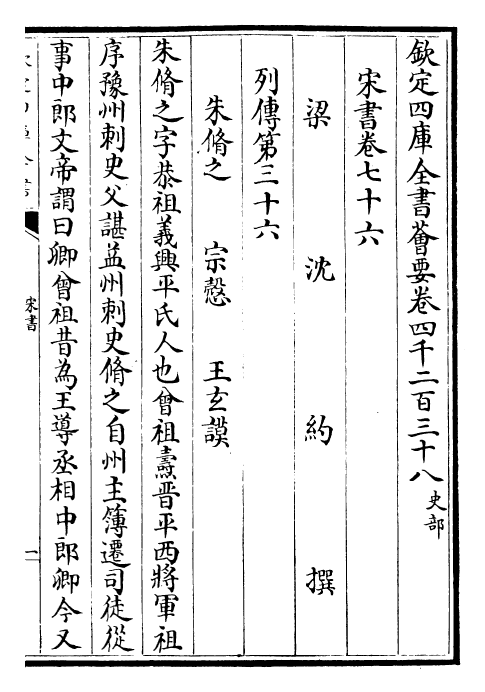 欽定四庫全書薈要卷四千二百三十八 史部
宋書卷七十六
梁 沈約 撰
列傳第三十六
朱脩之 宗慤 王玄謨
朱脩之字恭祖義興平氏人也曾祖燾晋平西將軍祖
序豫州刺史父諶益州刺史脩之自州主簿遷司徒從
事中郎文帝謂曰卿曾祖昔為王導丞相中郎卿今又
宋書
一